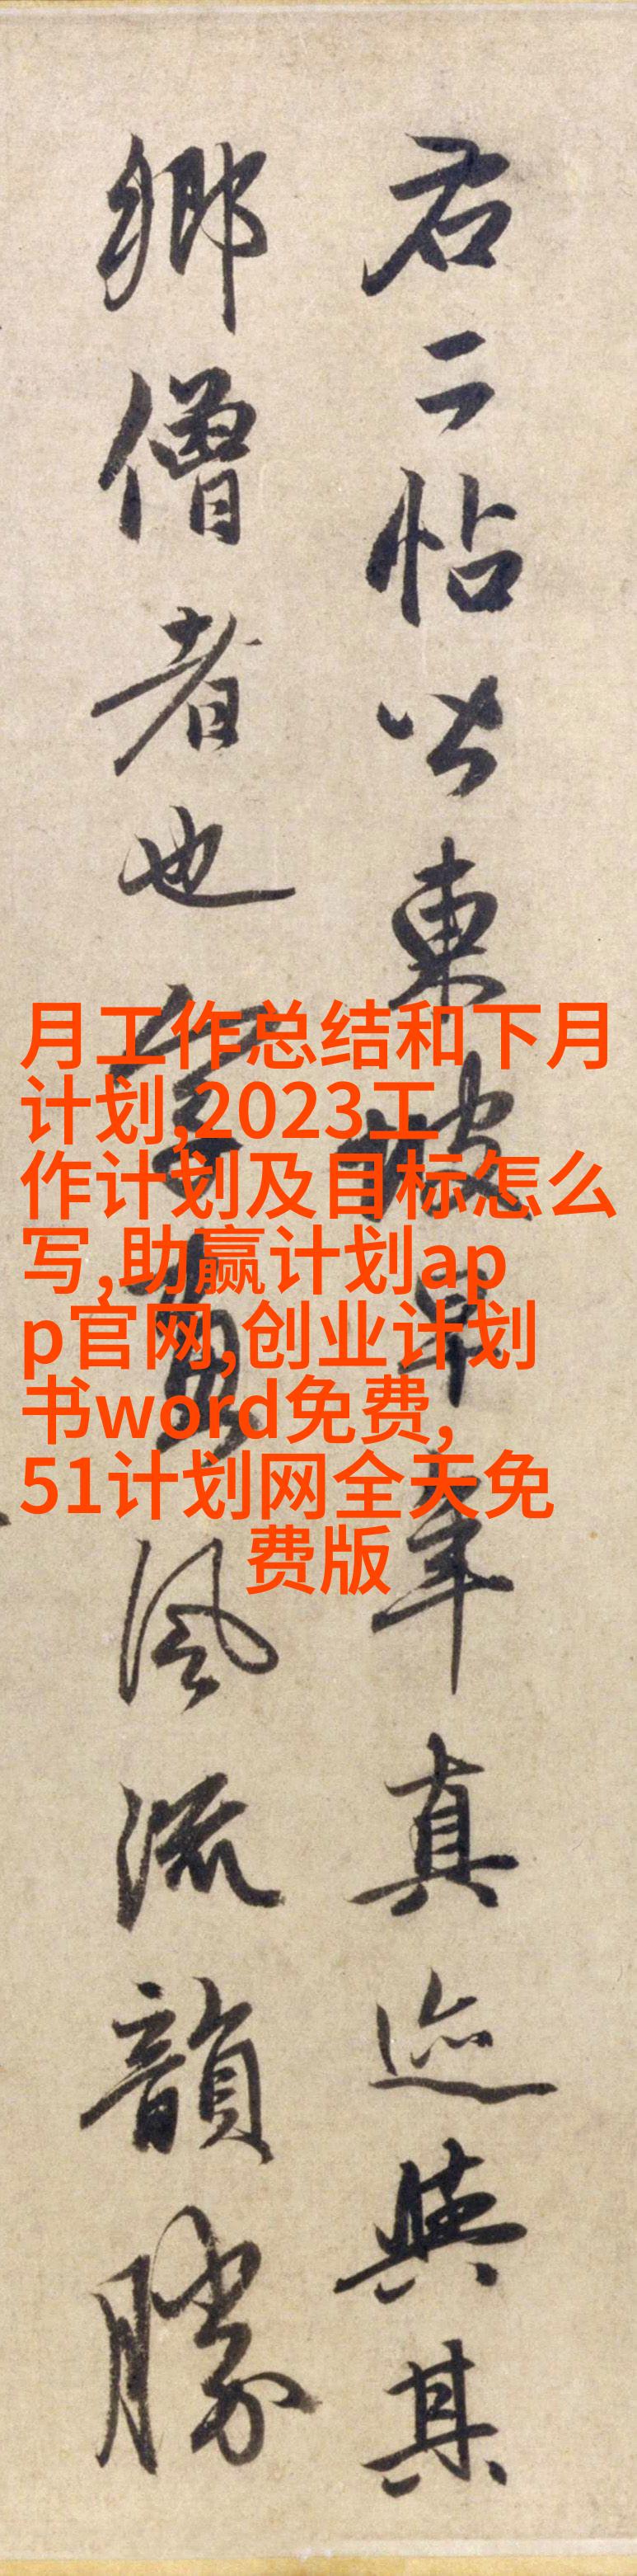 右二帖皆東坡早年真迹與其
鄉僧者也字畫風流韻勝
月工作总结和下月
计划,2023工
作计划及目标怎么
写,助赢计划ap
p官网,创业计划
书word免费,
51计划网全天免
费版